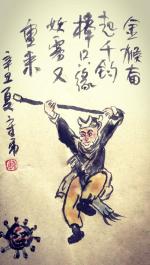 金猴奋
起千钧
棒只缘
妖雾又
重来
辛丑夏